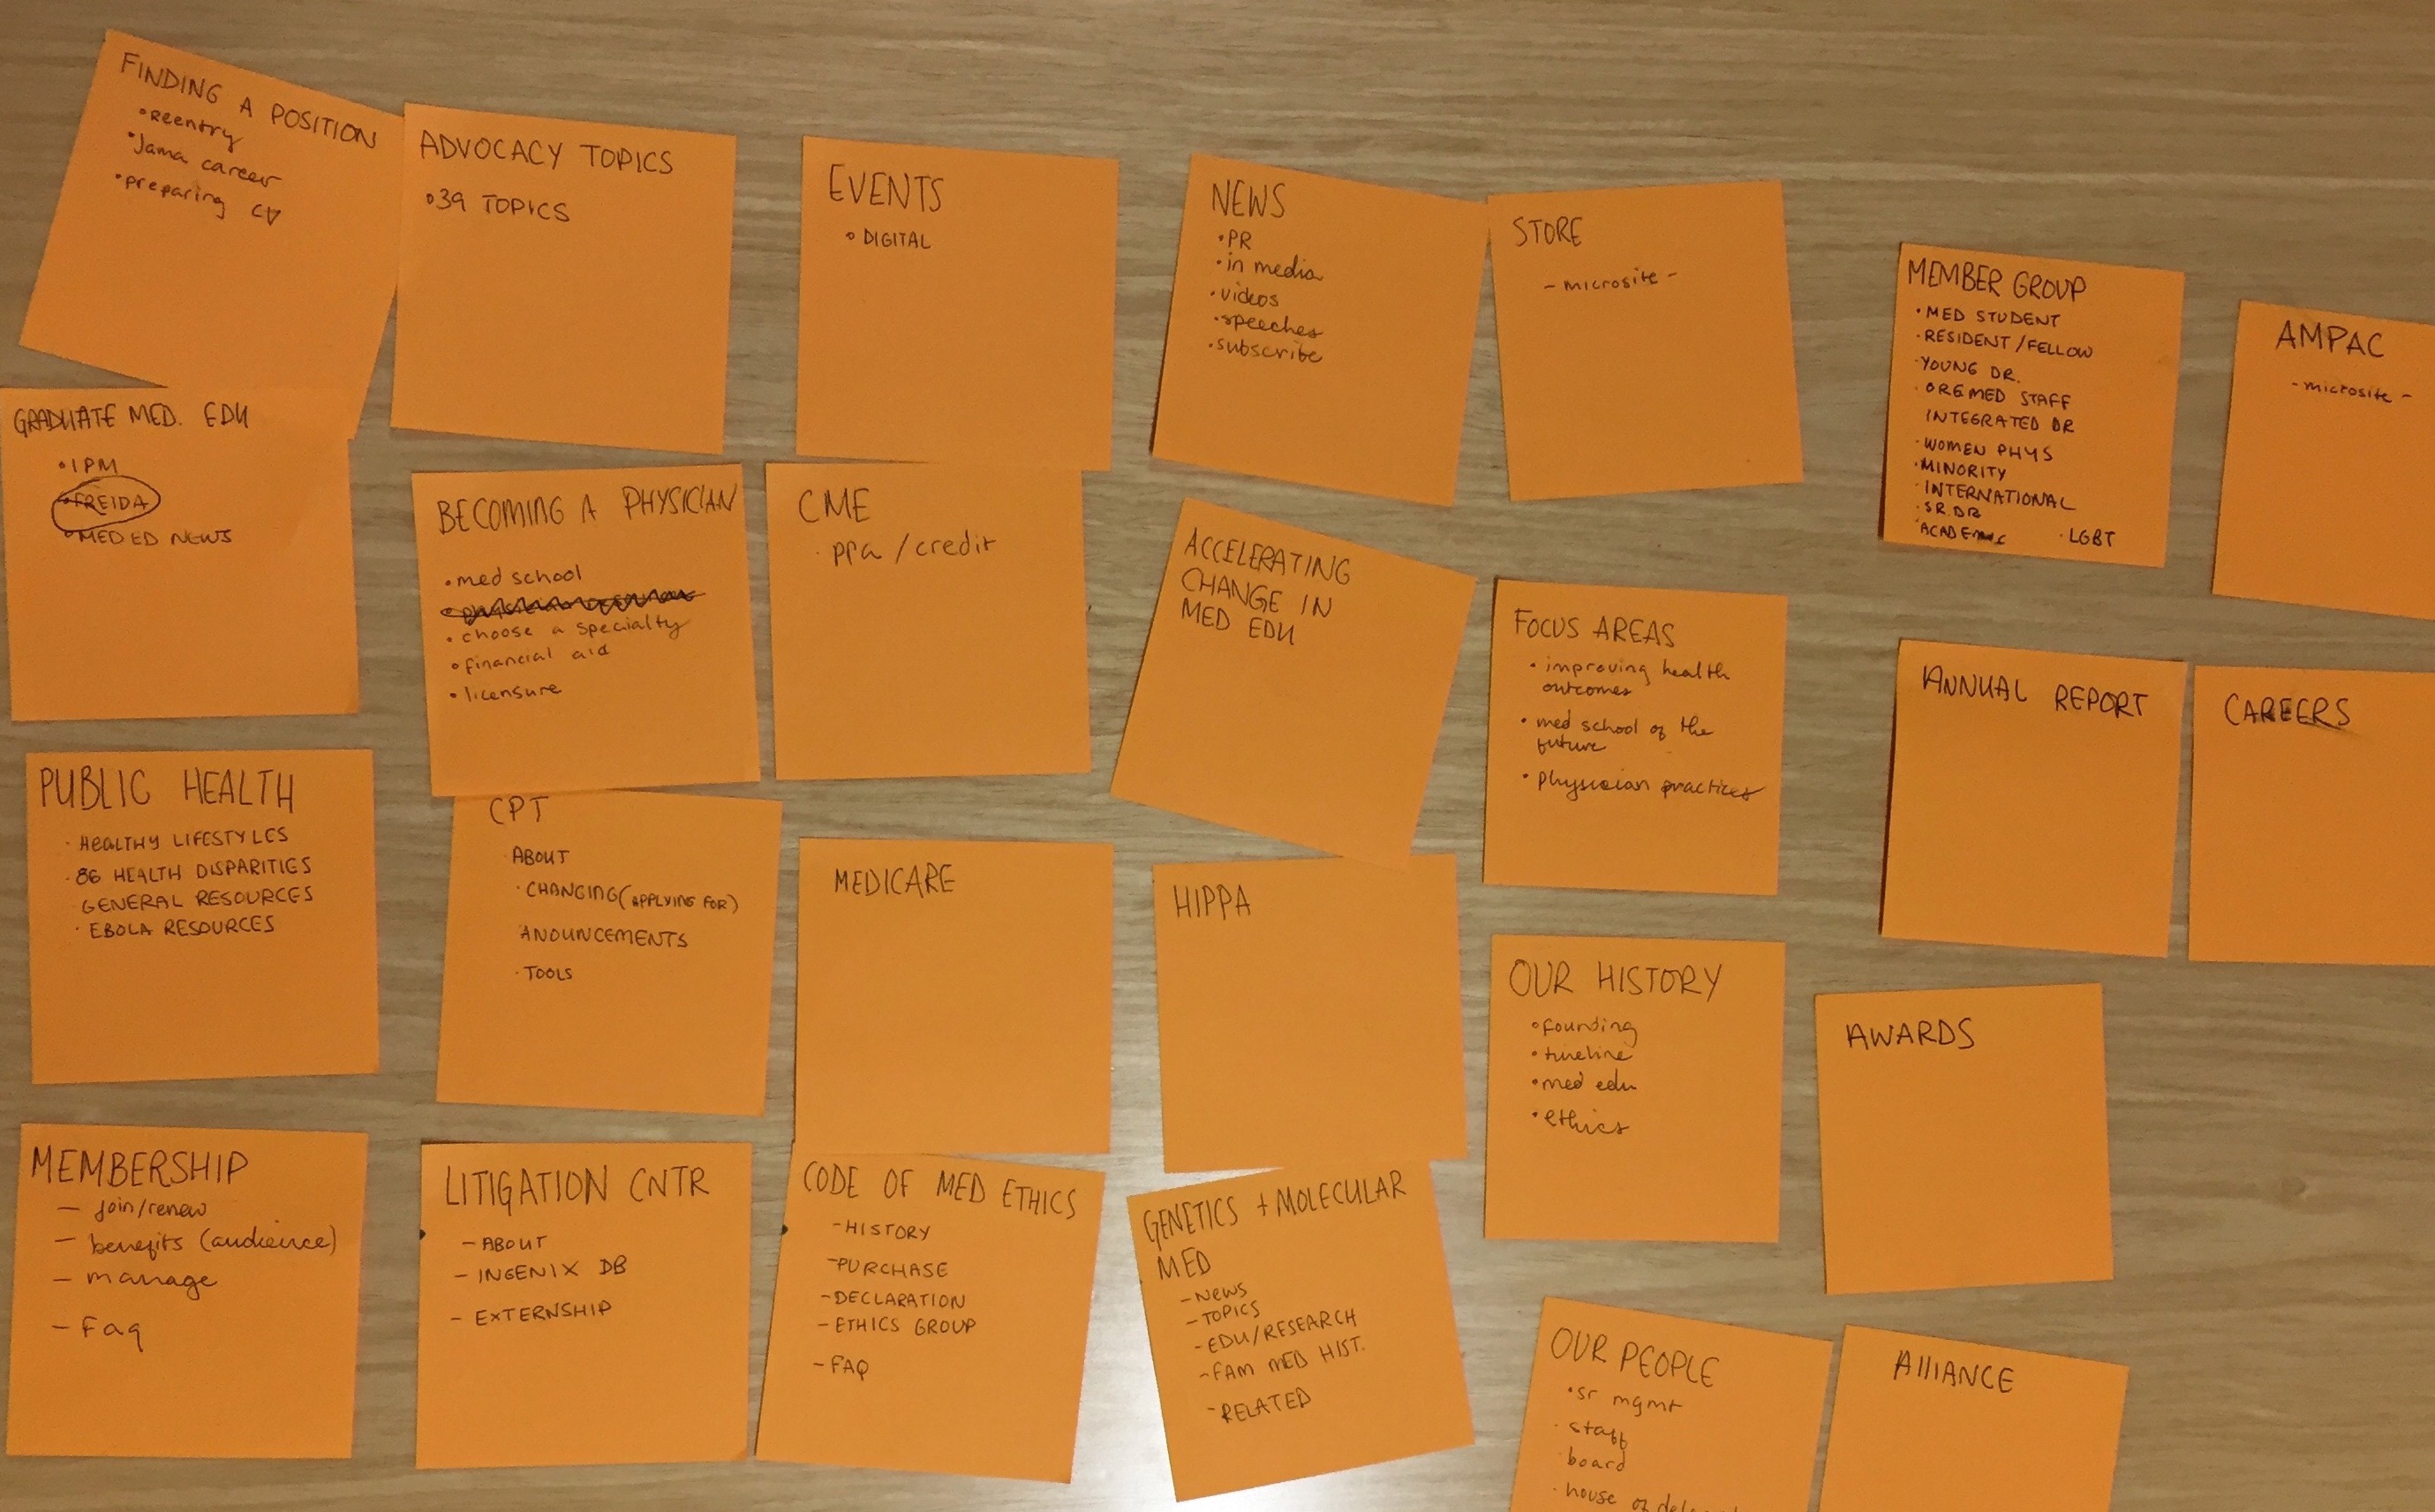 FINDING A POSITION
•Reentry
•Jama career
•preparing CV
ADVOCACY TOPICS
•39 TOPICS
EVENTS
• DIGITAL
NEWS
•PR
•in media
•videos
•speeches
•subscribe
STORE
- microsite -
MEMBER GROUP
•MED STUDENT
•RESIDENT/FELLOW
•YOUNG DR.
•ORG MED STAFF
INTEGRATED DR
•WOMEN PHYS
•MINORITY
•INTERNATIONAL
•SR. DR
•ACADEMIC •LGBT
AMPAC
- microsite -
GRADUATE MED. EDU
•IPM
•FREIDA
•MED ED NEWS
BECOMING A PHYSICIAN
•med school
•choose a specialty
•financial aid
•licensure
CME
•ppa / credit
ACCELERATING
CHANGE IN
MED EDU
FOCUS AREAS
•improving health
outcomes
•med school of the
future
•physician practices
ANNUAL REPORT
CAREERS
PUBLIC HEALTH
•HEALTHY LIFESTYLES
•86 HEALTH DISPARITIES
GENERAL RESOURCES
•EBOLA RESOURCES
CPT
•ABOUT
•CHANGING (APPLYING FOR)
ANOUNCEMENTS
•TOOLS
MEDICARE
HIPPA
OUR HISTORY
•founding
•timeline
•med edu
•ethics
AWARDS
MEMBERSHIP
- join/renew
- benefits (audience)
- manage
- faq
LITIGATION CNTR
- ABOUT
- INGENIX DB
- EXTERNSHIP
CODE OF MED ETHICS
-HISTORY
-PURCHASE
-DECLARATION
-ETHICS GROUP
-FAQ
GENETICS + MOLECULAR
MED
-NEWS
-TOPICS
-EDU/RESEARCH
-FAM MED HIST.
-RELATED
OUR PEOPLE
•sr mgmt
•staff
•board
•house of
AllIANCE